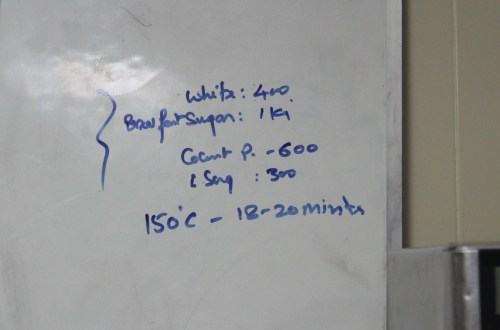 White: 400
Breakfast Sugar: 1 Kg
Cocunt P. - 600
: 300
150°C - 18-20 minutes